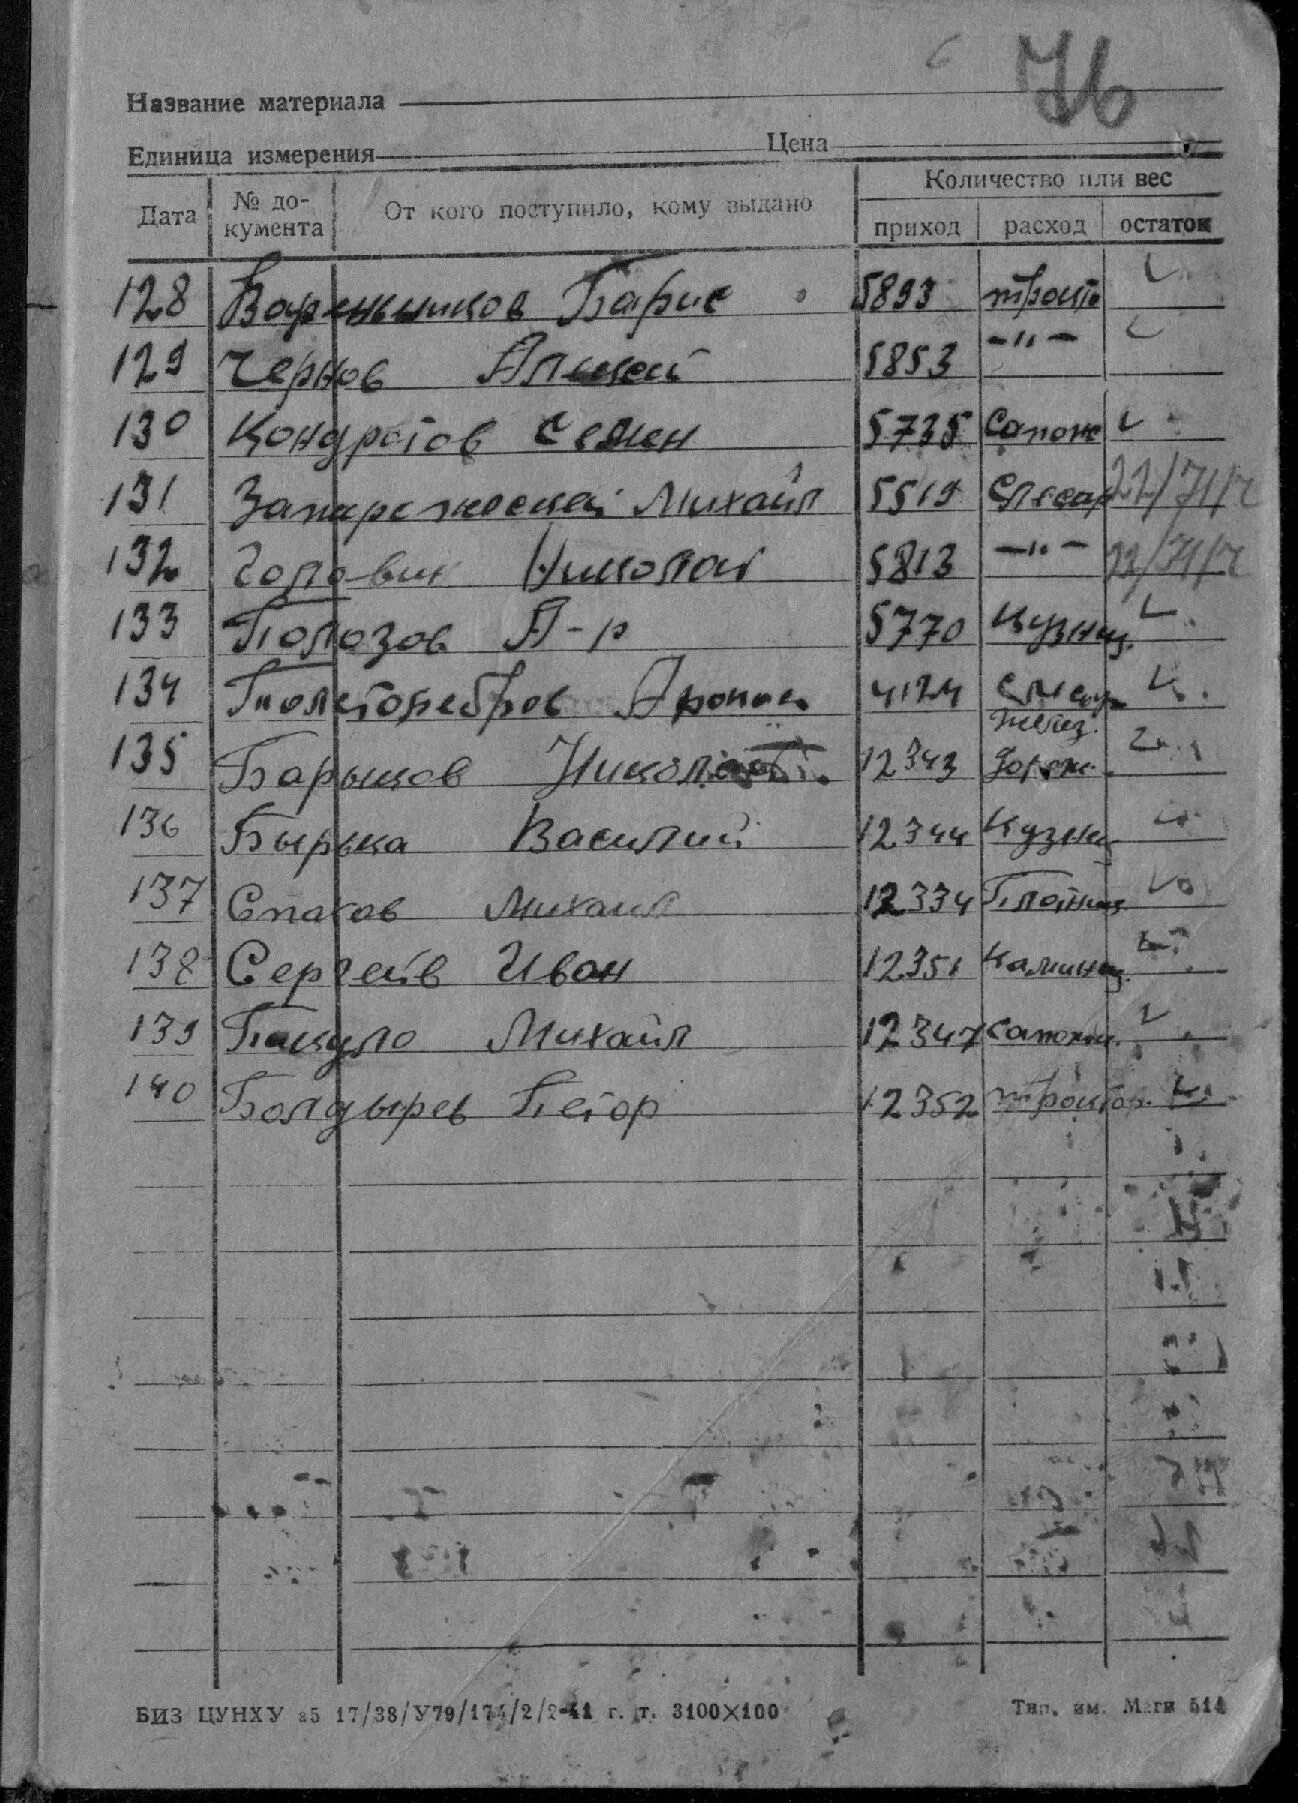 76
Название материала
Единица измерения Цена
Дата № до-кумента От кого поступило, кому выдано Количество или вес
приход расход остаток
128 Вареньников Барис 5893 тракто
129 Чернов Алексей 5853 —"—
130 Кондротов Семен 5735 Сапож
131 Запарожеский Михайл 5519 Слесар
132 Головин Николай 5813 —"—
133 Полозов А-р 5770 Кузнец.
134 Толсторебров Афонас 4124 слесар
135 Барыков Николай 12343 Желез. Дорож.
136 Бырька Василий 12344 Кузнец
137 Спасов Михаил 12334 Плотниц.
138 Сергейв Иван 12351 Каминщ.
139 Пакуло Михайл 12347 сапожн.
140 Болдырев Петор 12352 трактор.
БИЗ ЦУНХУ а5 17/38/У79/174/2/2-41 г. т. 3100×100 Тип. им. Маги 514